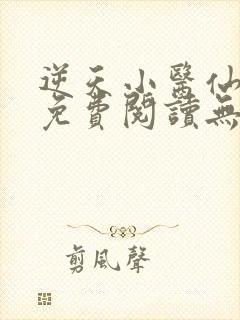 逆天小醫仙
免費閱讀無
剪風聲